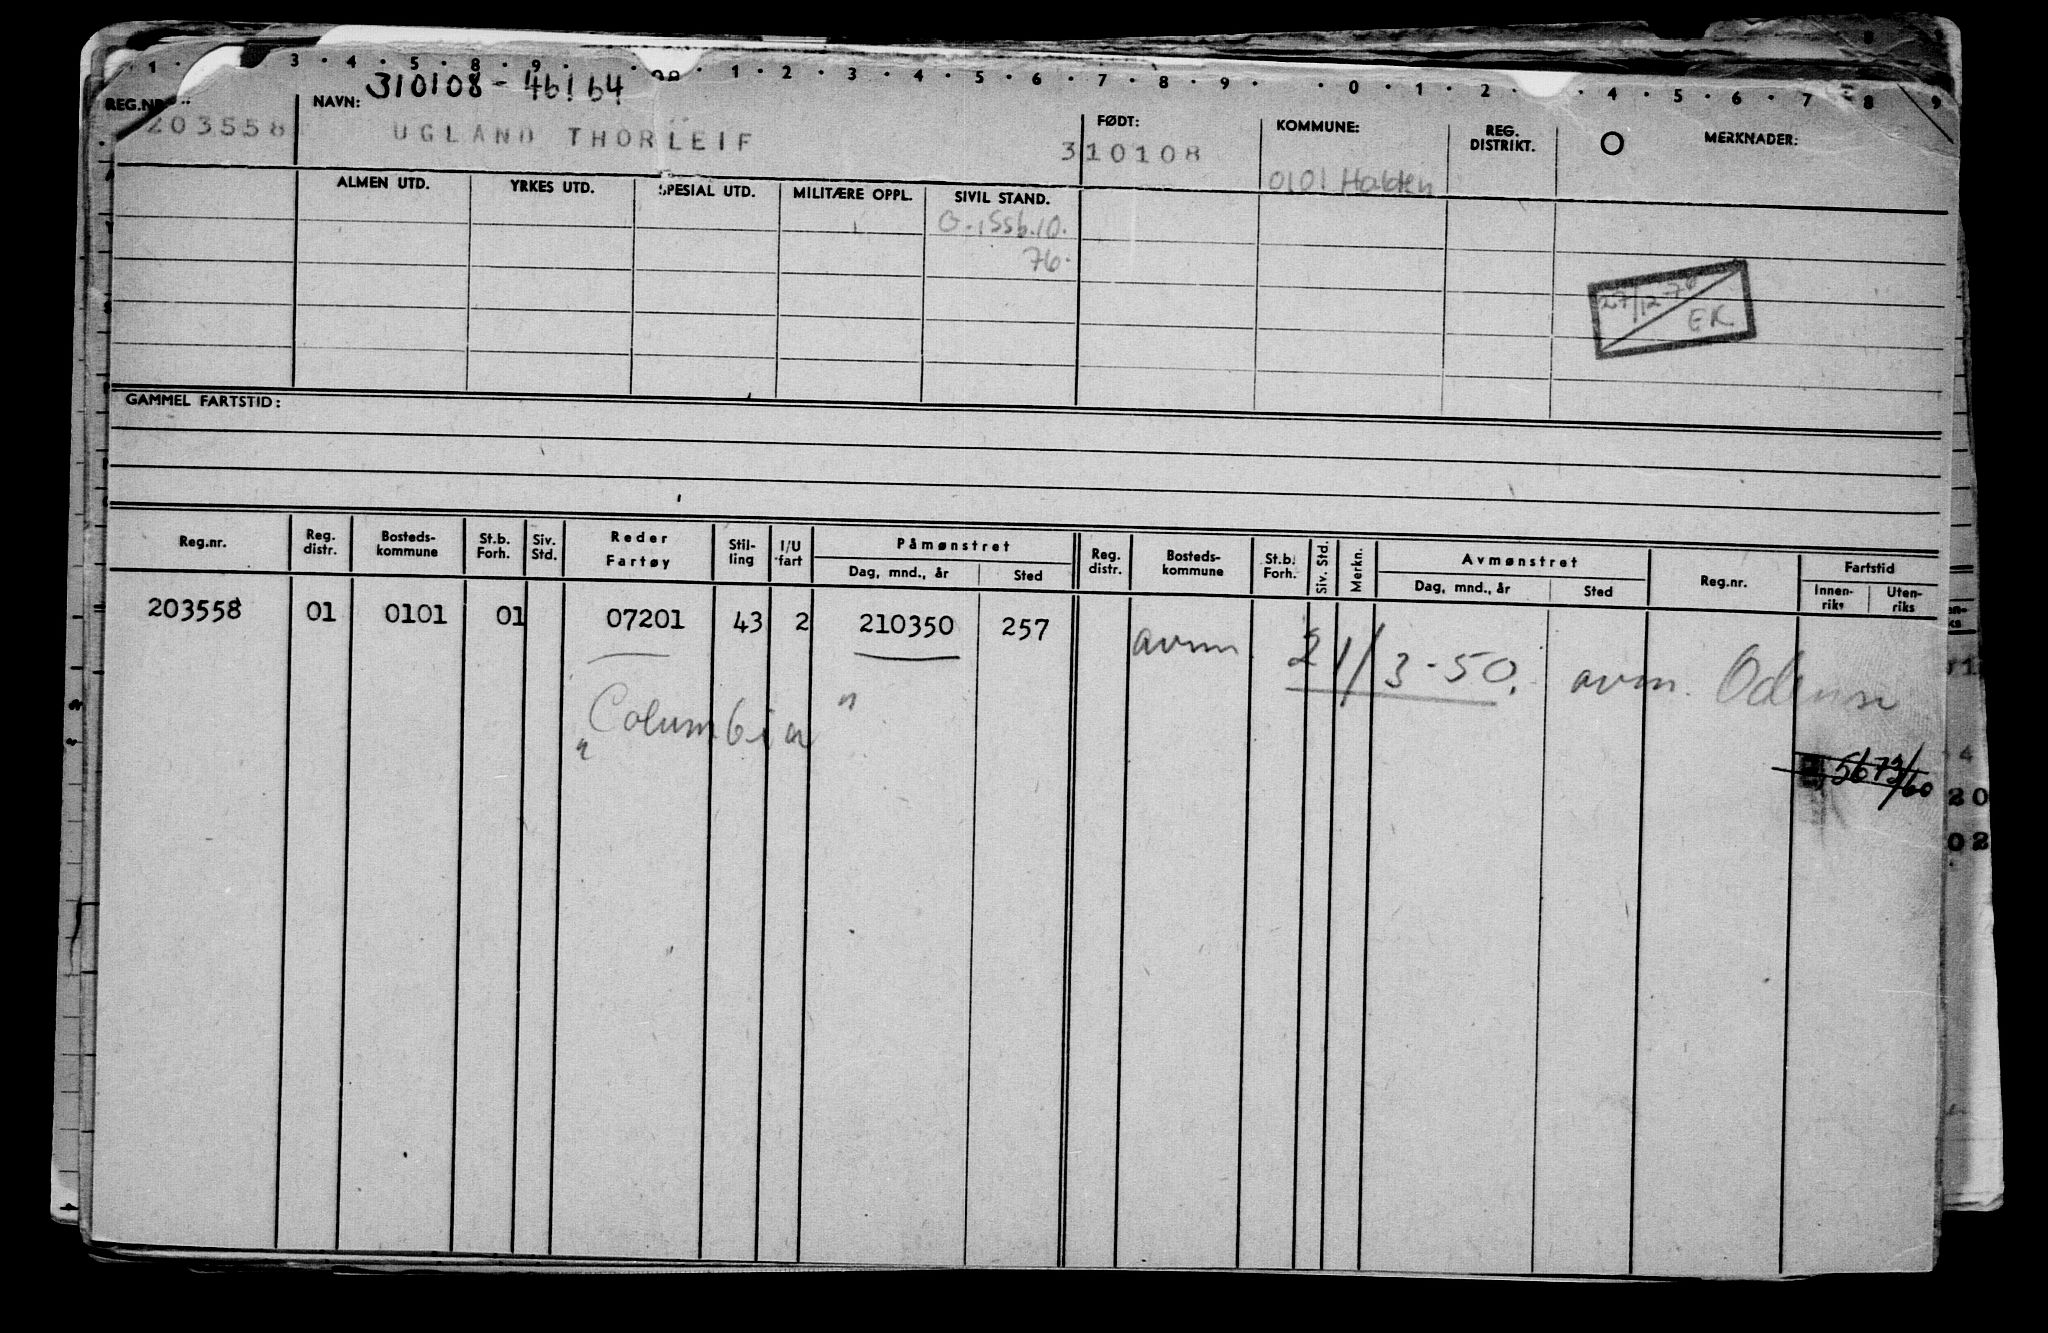 1 . 3 . 4 . 5 . 8 . 9 . 1 . 2 . 3 . 4 . 5 . 6 . 7 . 8 . 9 . 0 . 1 . 2 . 4 . 5 . 6 . 7 . 8 9
310108 - 46164
REG.NR. NAVN: FØDT: KOMMUNE: REG. DISTRIKT. MERKNADER:
203558 UGLAND THORLEIF 310108 0101 Halden
ALMEN UTD. YRKES UTD. SPESIAL UTD. MILITÆRE OPPL. SIVIL STAND.
76.
27/12-76
EK
GAMMEL FARTSTID:
Reg.nr. Reg. distr. Bosteds-kommune St.b. Forh. Siv. Std. Reder Fartøy Stil-ling I/U fart Påmønstret Dag, mnd., år Sted Reg. distr. Bosteds-kommune St.b. Forh. Siv. Std. Merkn. Avmønstret Dag, mnd., år Sted Reg.nr. Fartstid Innen-riks Uten-riks
203558 01 0101 01 07201 43 2 210350 257 avm 21/3-50. avm. Odense
"Columbia"
5673/60
20
02